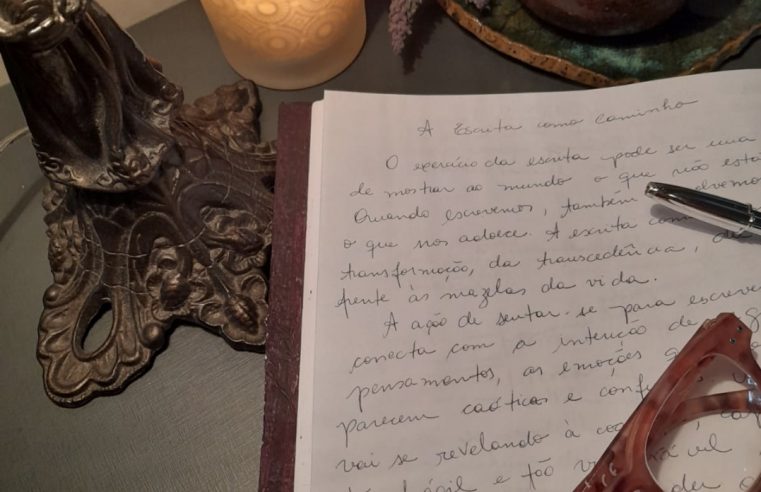 A Escrita como caminho
O exercício da escrita pode ser uma
de mostrar ao mundo o que não está
Quando escrevemos, também
o que nos adoece. A escrita com
transformação, da transcedência,
frente às mazelas da vida.
A ação de sentar-se para escreve
conecta com a intenção de
pensamentos, as emoções
parecem caóticas e conf
vai se revelando à
frágil e tão